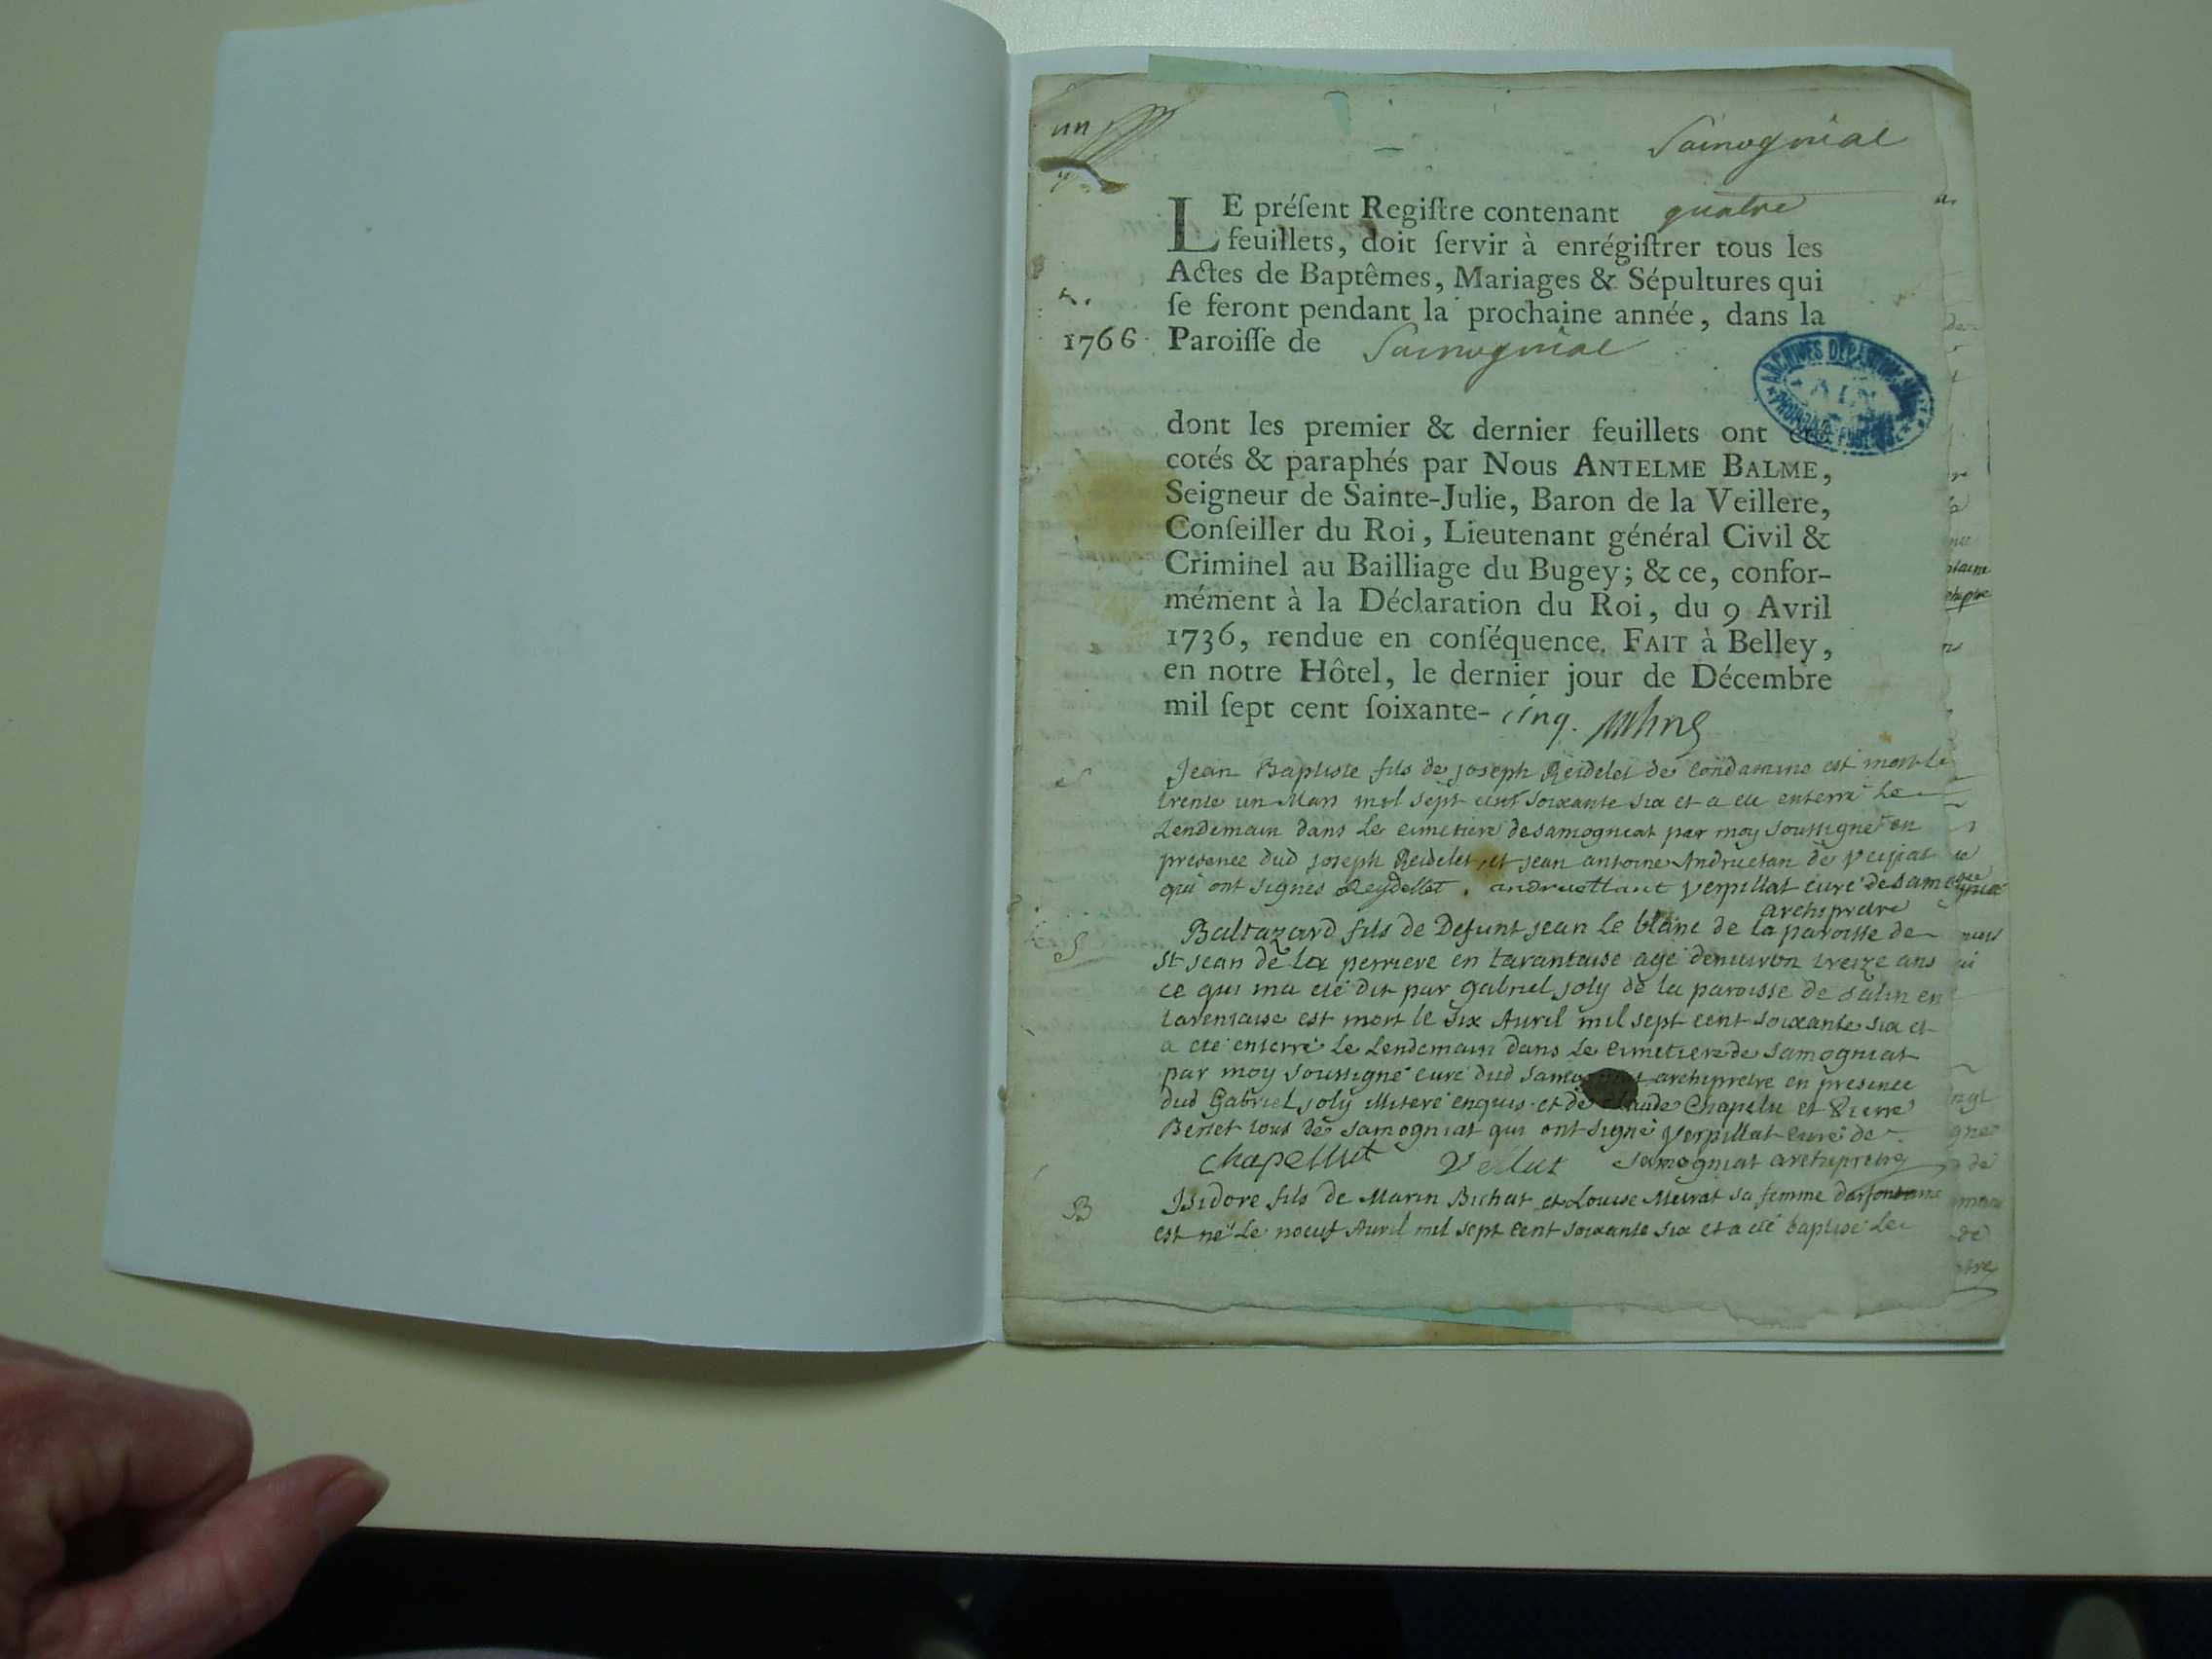 un
Samogniat
LE préſent Regiſtre contenant quatre
feuillets, doit ſervir à enrégiſtrer tous les
Actes de Baptêmes, Mariages & Sépultures qui
ſe feront pendant la prochaine année, dans la
1766 Paroiſſe de Samogniat
ARCHIVES DÉPARTEMENTALES
AIN
dont les premier & dernier feuillets ont été
cotés & paraphés par Nous ANTELME BALME,
Seigneur de Sainte-Julie, Baron de la Veillere,
Conſeiller du Roi, Lieutenant général Civil &
Criminel au Bailliage du Bugey; & ce, confor-
mément à la Déclaration du Roi, du 9 Avril
1736, rendue en conſéquence. FAIT à Belley,
en notre Hôtel, le dernier jour de Décembre
mil ſept cent ſoixante- cinq.
S Jean Baptiste fils de joseph Reidelet de Condamine est mort le
trente un Mars mil sept cent soixante six et a eté enterré le
Lendemain dans le cimetiere de samogniat par moy soussigné en
presence dud joseph Reidelet et jean antoine Andruetan de
qui ont signes Reydellet. andruettant verpillat curé de samogniat
archipretre
S Baltazard fils de Defunt jean le blanc de la paroisse de
st jean de la perriere en tarantaise agé denuiron treize ans
ce qui ma eté dit par gabriel joly de la paroisse de salin en
tarentaise est mort le six Auril mil sept cent soixante six et
a eté enterré le Lendemain dans le cimetiere de samogniat
par moy soussigné curé dud samogniat archipretre en presence
dud Gabriel joly illiteré enquis et de claude Chapelu et Pierre
Berlet tous de samogniat qui ont signé verpillat curé de
chapellut samogniat archipretre
B Isidore fils de Marin Bichat et Louise Meirat sa femme
est né le noeuf Auril mil sept cent soixante six et a eté baptisé le